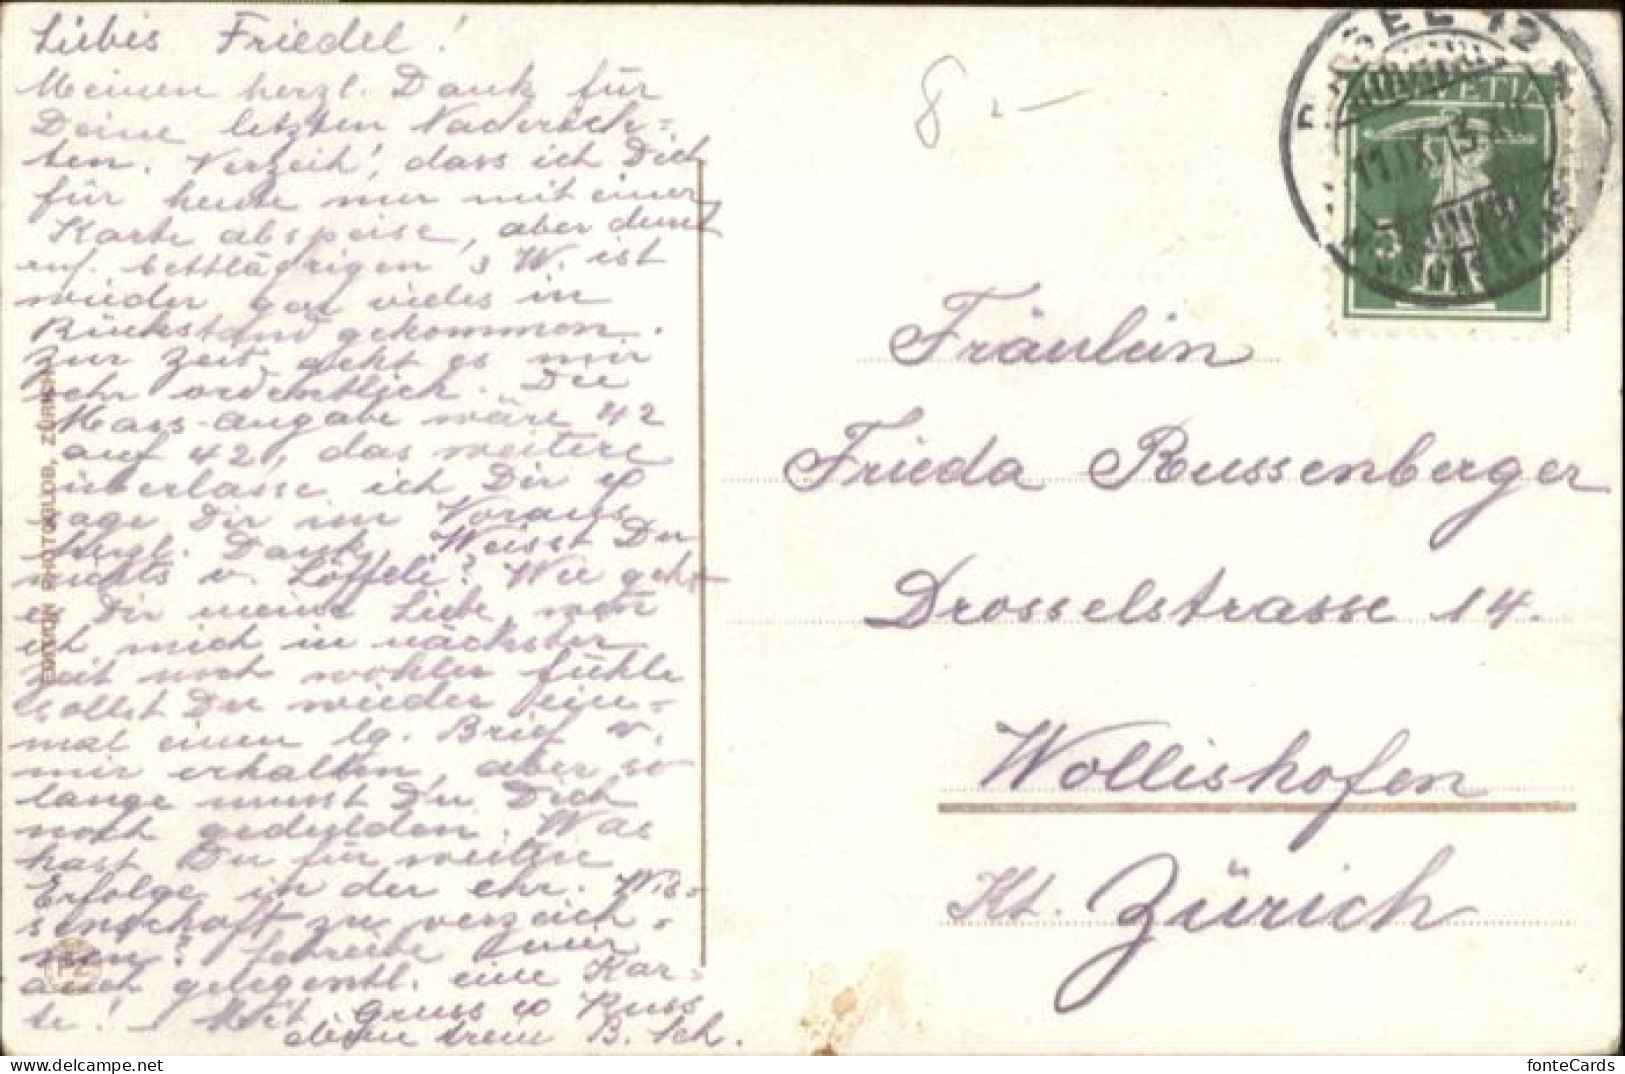 Liebes Friedel!
Meinen herzl. Dank für
Deine letzten Nachrich=
ten. Verzeih!, dass ich Dich
für heute nur mit einer
Karte abspeise, aber
bettlägrigen 's W. ist
wieder gar vieles in
Rückstand gekommen.
Zur Zeit geht es mir
sehr ordentlich. Die
Mass-angabe wäre 42
auf 42, das weitere
überlasse ich Dir &
sage Dir im Voraus
herzl. Dank. Weisst Du
nichts v. Löffeli? Wie geht
es Dir meine Liebe, wen
ich mich in nächster
Zeit noch wohler fühle
sollst Du wieder ein=
mal einen lg. Brief v.
mir erhalten, aber so
lange musst Du Dich
noch gedulden. Was
hast Du für weitere
Erfolge in der chr. Wis=
senschaft zu verzeich=
nen? Schreibe
auch gelegentl. eine Kar=
te! Mit Gruss & Kuss
deine treue B. Sch.
EDITION PHOTOGLOB, ZÜRICH
PZ
8.–
BASEL 12
11.IX.15.XII
HELVETIA
5
Fräulein
Frieda Russenberger
Drosselstrasse 14.
Wollishofen
Kt. Zürich
fonteCards